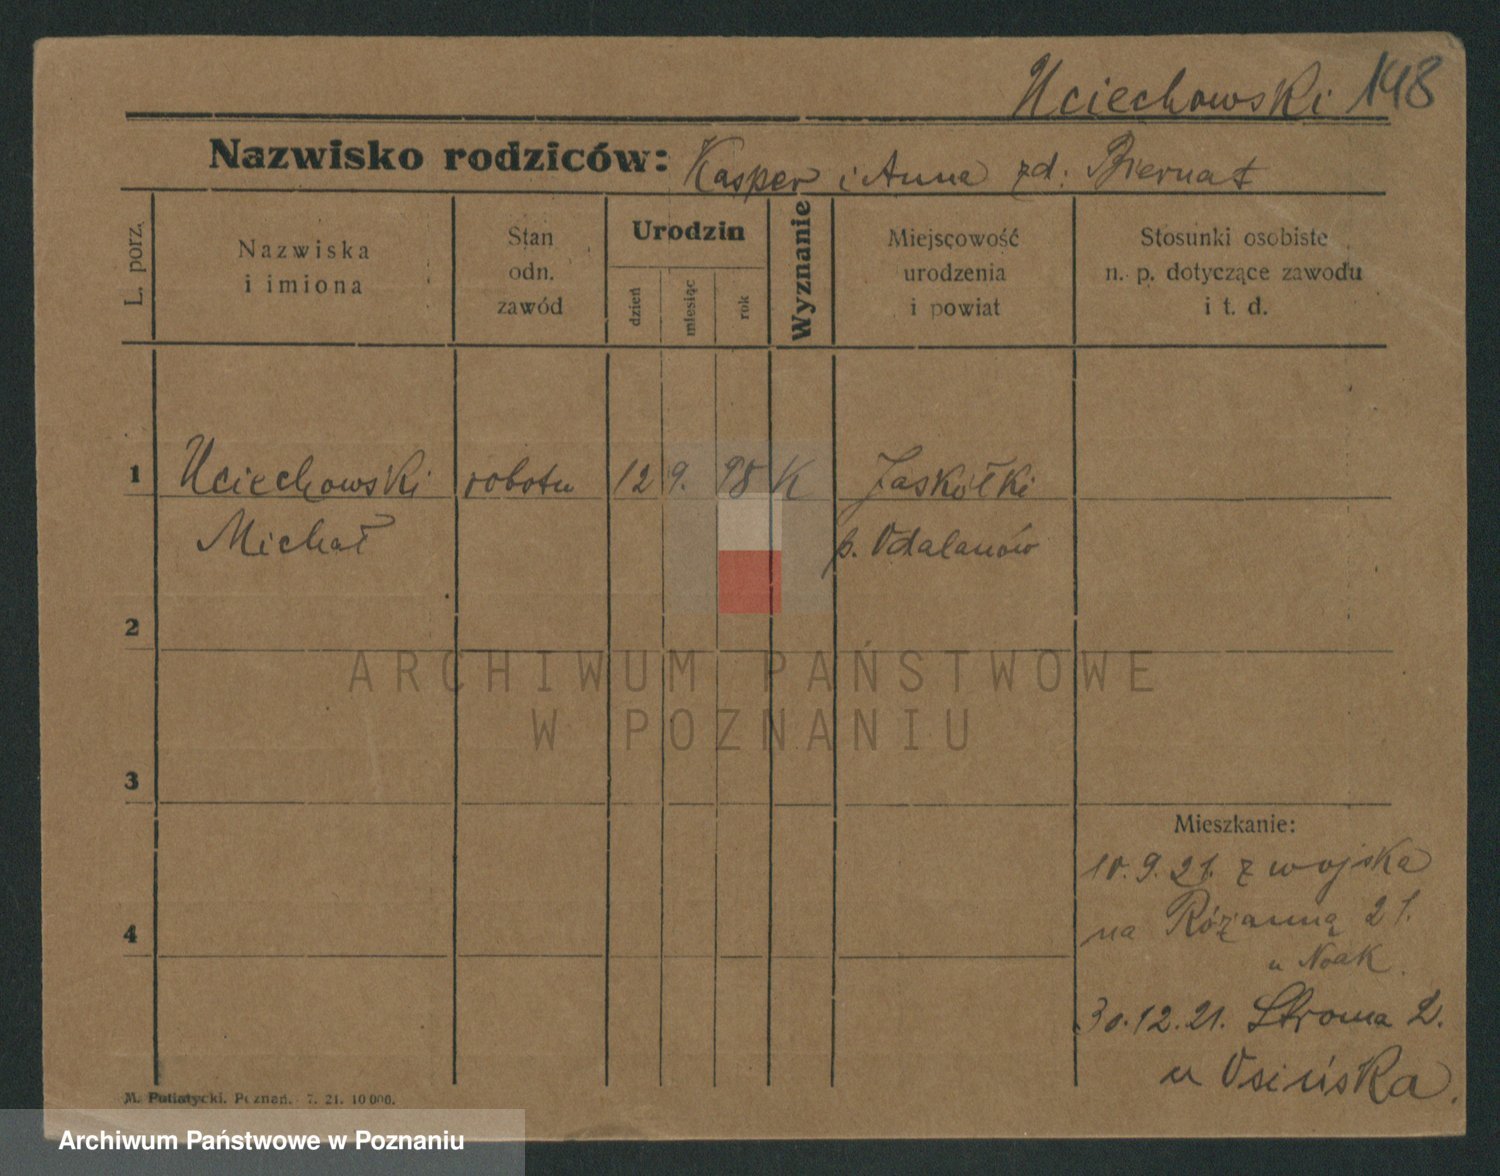 Uciechowski 148
Nazwisko rodziców: Kasper i Anna zd. Biernat
L. porz.
Nazwiska
i imiona
Stan
odn.
zawód
Urodzin
dzień
miesiąc
rok
Wyznanie
Miejscowość
urodzenia
i powiat
Stosunki osobiste
n. p. dotyczące zawodu
i t. d.
1 Uciechowski robotn 12 9. 98 K Jaskółki
Michał p. Odalanów
2
ARCHIWUM PAŃSTWOWE
W POZNANIU
3
Mieszkanie:
10.9.21. z wojska
na Różanną 21.
4
u Noak.
30.12.21. Stroma 2.
u Osińska.
M. Poznań. 7. 21. 10 000.
Archiwum Państwowe w Poznaniu